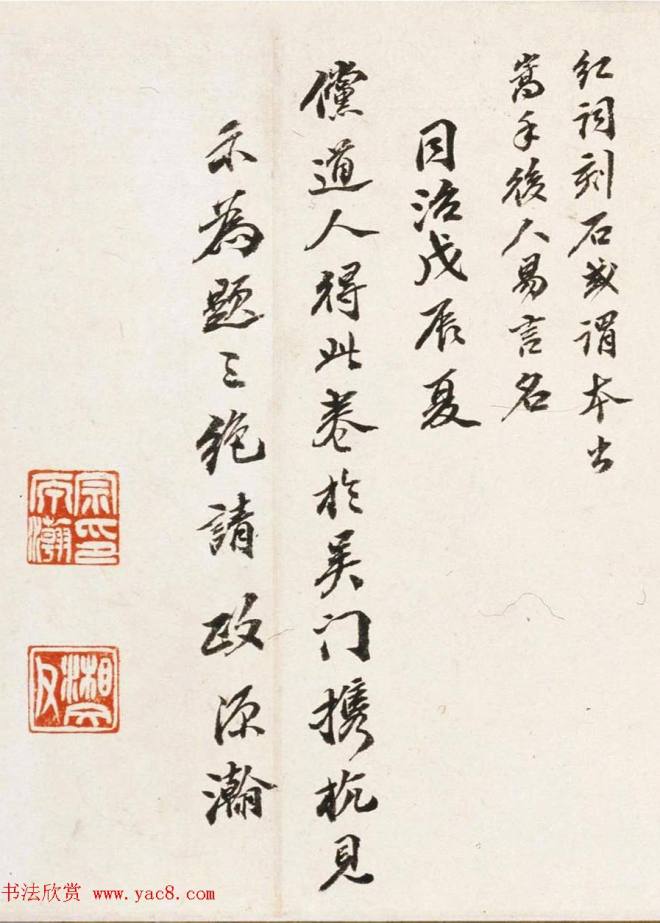 红词刻石或谓本出
嵩手後人易言名
同治戊辰夏
儻道人得此卷於吴门携杭见
示為题三绝請政源瀚
宗印源瀚
湘文
书法欣赏 www.yac8.com